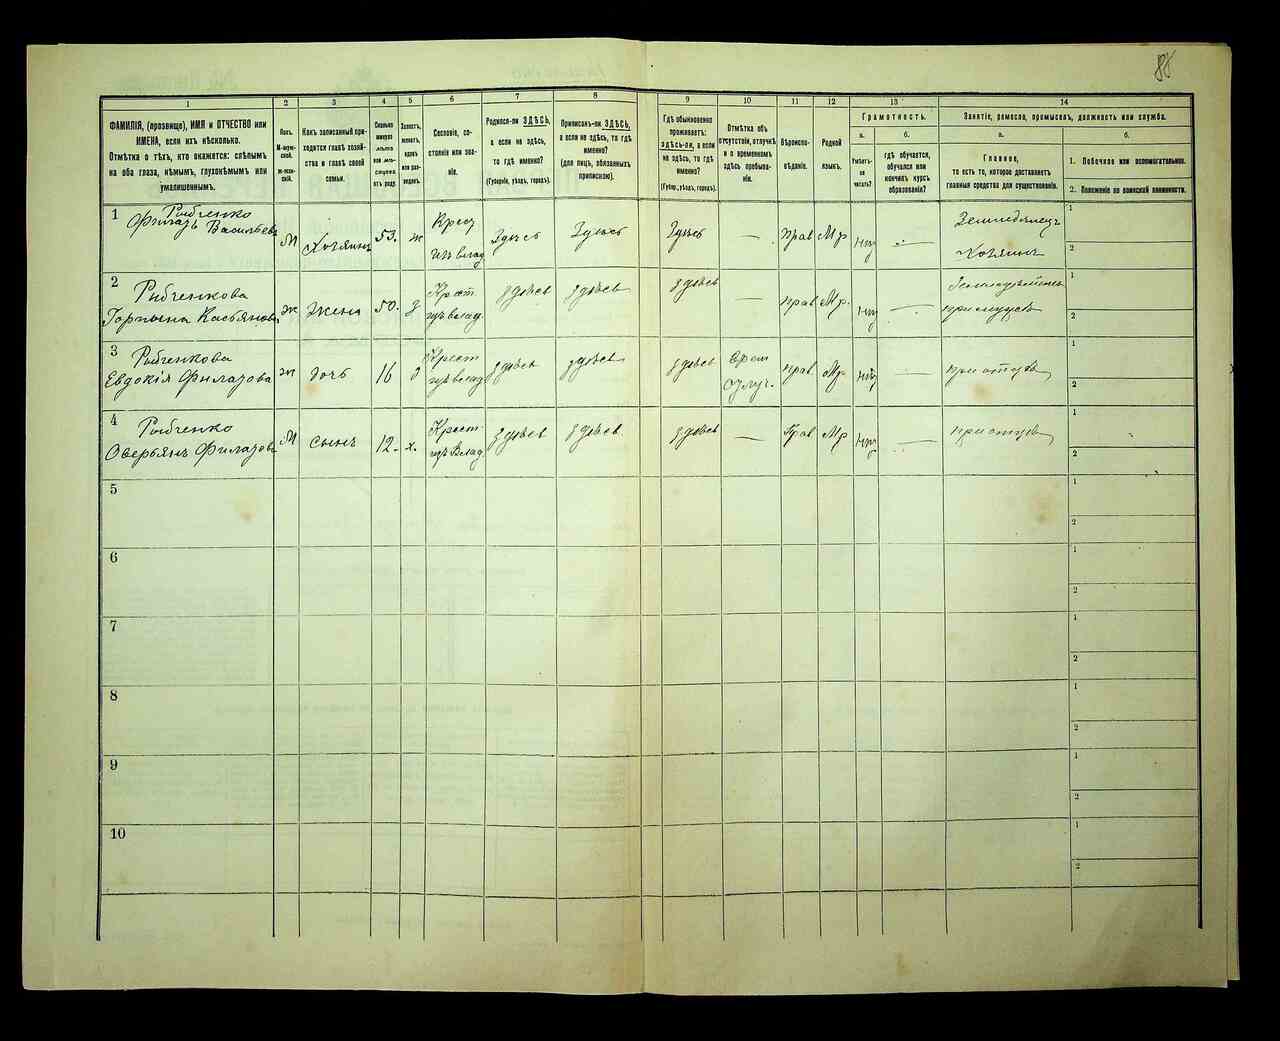 88
1 2 3 4 5 6 7 8 9 10 11 12 13 14
ФАМИЛІЯ, (прозвище), ИМЯ и ОТЧЕСТВО или
ИМЕНА, если ихъ нѣсколько.
Отмѣтка о тѣхъ, кто окажется: слѣпымъ
на оба глаза, нѣмымъ, глухонѣмымъ или
умалишеннымъ.
Полъ.
М-муж-
ской.
Ж-жен-
скій.
Какъ записанный при-
ходится главѣ хозяй-
ства и главѣ своей
семьи.
Сколько
минуло
лѣтъ
или мѣ-
сяцевъ
отъ роду.
Холостъ,
женатъ,
вдовъ
или раз-
веденъ.
Сословіе, со-
стояніе или зва-
ніе.
Родился-ли ЗДѢСЬ,
а если не здѣсь,
то гдѣ именно?
(Губернія, уѣздъ, городъ).
Приписанъ-ли ЗДѢСЬ,
а если не здѣсь, то гдѣ
именно?
(для лицъ, обязанныхъ
припискою).
Гдѣ обыкновенно
проживаетъ:
здѣсь-ли, а если
не здѣсь, то гдѣ
именно?
(Губер., уѣздъ, городъ).
Отмѣтка объ
отсутствіи, отлучкѣ
и о временномъ
здѣсь пребыва-
ніи.
Вѣроиспо-
вѣданіе.
Родной
языкъ.
Грамотность.
а. б.
Умѣетъ-
ли
читать?
гдѣ обучается,
обучался или
кончилъ курсъ
образованія?
Занятіе, ремесло, промыселъ, должность или служба.
а. б.
Главное,
то есть то, которое доставляетъ
главныя средства для существованія.
1. Побочное или вспомогательное.
2. Положеніе по воинской повинности.
1 Рыбченко
Филатъ Васильевъ М Хозяинъ 53. ж Крест изъ влад Здѣсь Здѣсь Здѣсь — Прав Мр нѣт — Земледѣлецъ Хозяинъ 1 2
2 Рыбченкова
Горпына Касьянова ж жена 50. з Крест. изъ влад. здѣсь здѣсь здѣсь — прав Мр. нѣт — 1 2
3 Рыбченкова
Евдокія Филатова ж дочь 16 д Крест изъ влад здѣсь здѣсь здѣсь Врем отлуч. прав Мр. нѣт — 1 2
4 Рыбченко
Оверьянъ Филатовъ М сынъ 12. х. Крест изъ Влад здѣсь здѣсь здѣсь — Прав Мр нѣт — 1 2
5 1 2
6 1 2
7 1 2
8 1 2
9 1 2
10 1 2